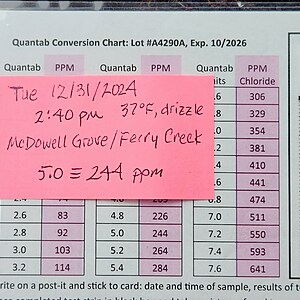 Quantab Conversion Chart: Lot #A4290A, Exp. 10/2026
Quantab PPM Quantab PPM PPM
Chloride
Tue 12/31/2024
2:40 pm 37°F, drizzle
McDowell Grove/Ferry Creek
5.0 ≡ 244 ppm
.6 306
.8 329
.0 354
.2 381
.4 410
.6 441
6.8 474
2.6 83 4.8 226 7.0 511
2.8 92 5.0 244 7.2 550
3.0 103 5.2 264 7.4 593
3.2 114 5.4 284 7.6 641
rite on a post-it and stick to card: date and time of sample, results of t